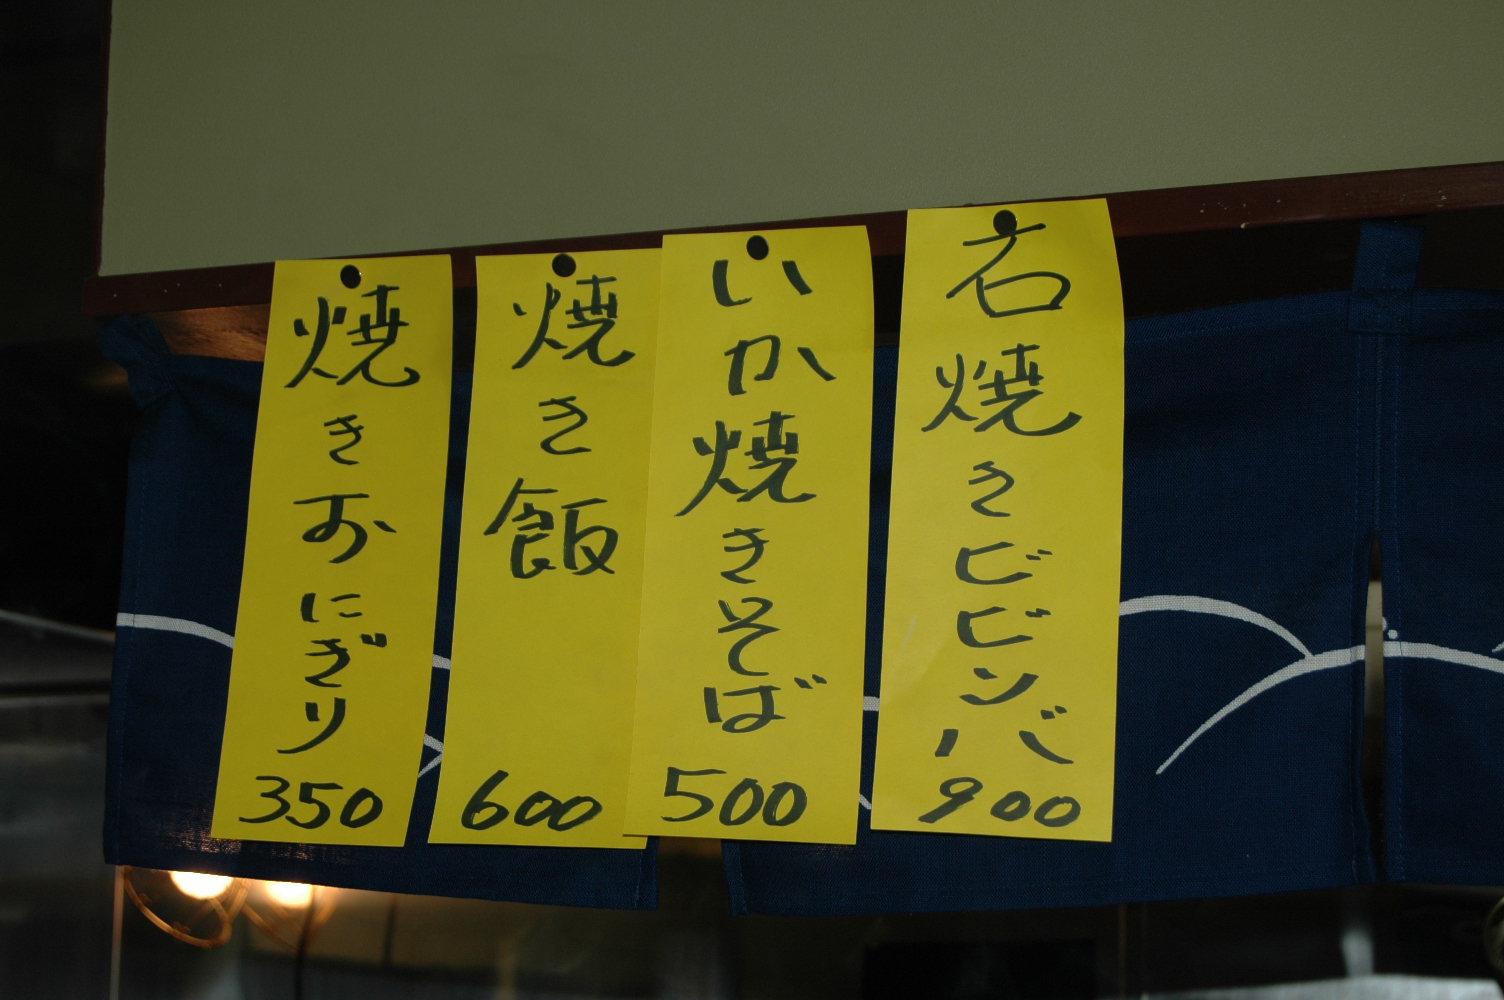 石焼きビビンバ
900
いか焼きそば
500
焼き飯
600
焼きおにぎり
350